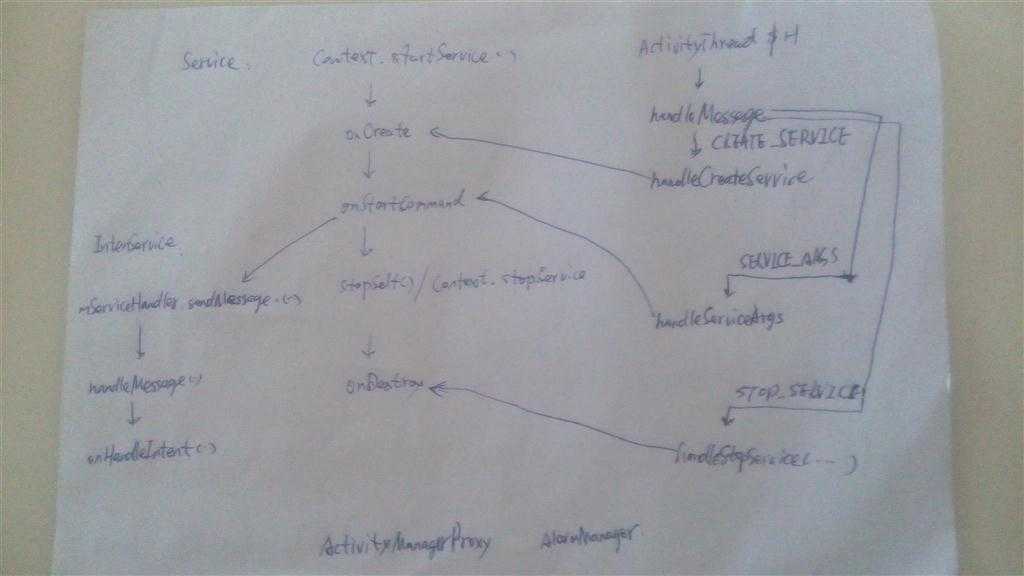 Service.
Context.startService(··)
ActivityThread $ H
onCreate
handleMessage
CREATE_SERVICE
handleCreateService
onStartCommand
InterService
SERVICE_ARGS
stopSelf()/Context.stopService
mServiceHandler.sendMessage.(··)
handleServiceArgs
handleMessage(··)
onDestroy
STOP_SERVICE
onHandleIntent(··)
handleStopService(....)
ActivityManagerProxy
AlarmManager